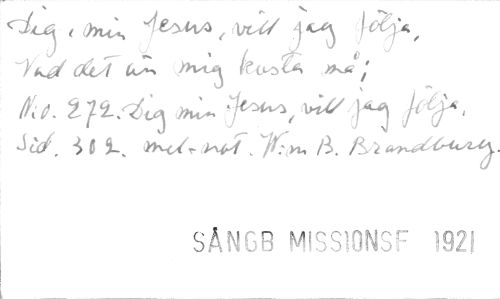 Dig, min Jesus, vill jag följa,
Vad det än mig kosta må;
N:o. 272. Dig min Jesus, vill jag följa.
Sid. 302. mel.-not. W:m B. Brandbury.
SÅNGB MISSIONSF 1921